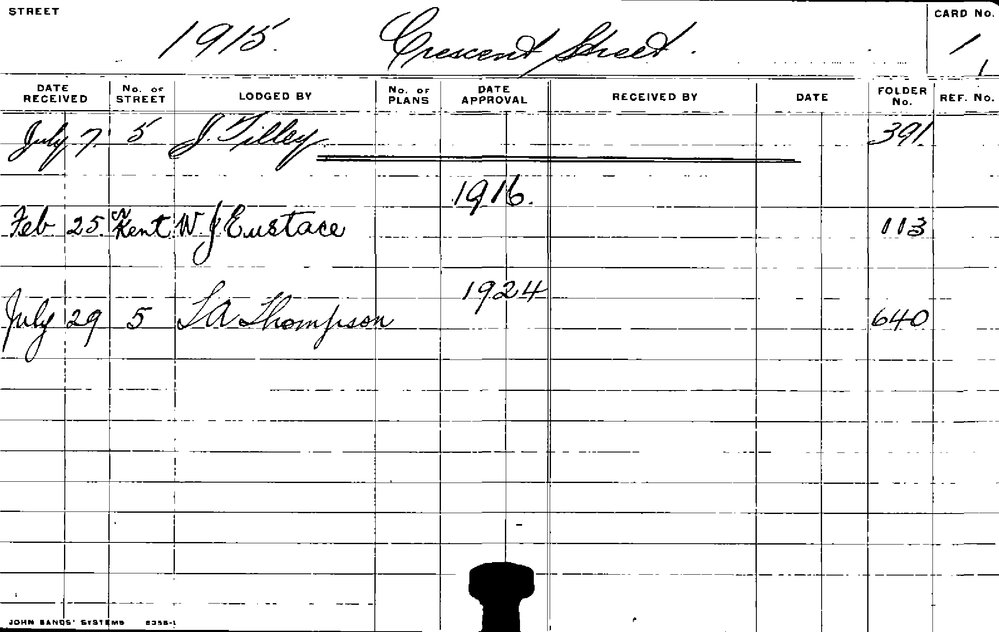 STREET 1915. Crescent Street. CARD No.
1
1
DATE RECEIVED No. OF STREET LODGED BY No. OF PLANS DATE APPROVAL RECEIVED BY DATE FOLDER No. REF. No.
July 7 5 J Tilley 391
1916.
Feb 25 Kent W J Eustace 113
1924
July 29 5 Thompson 640
JOHN SANDS' SYSTEMS